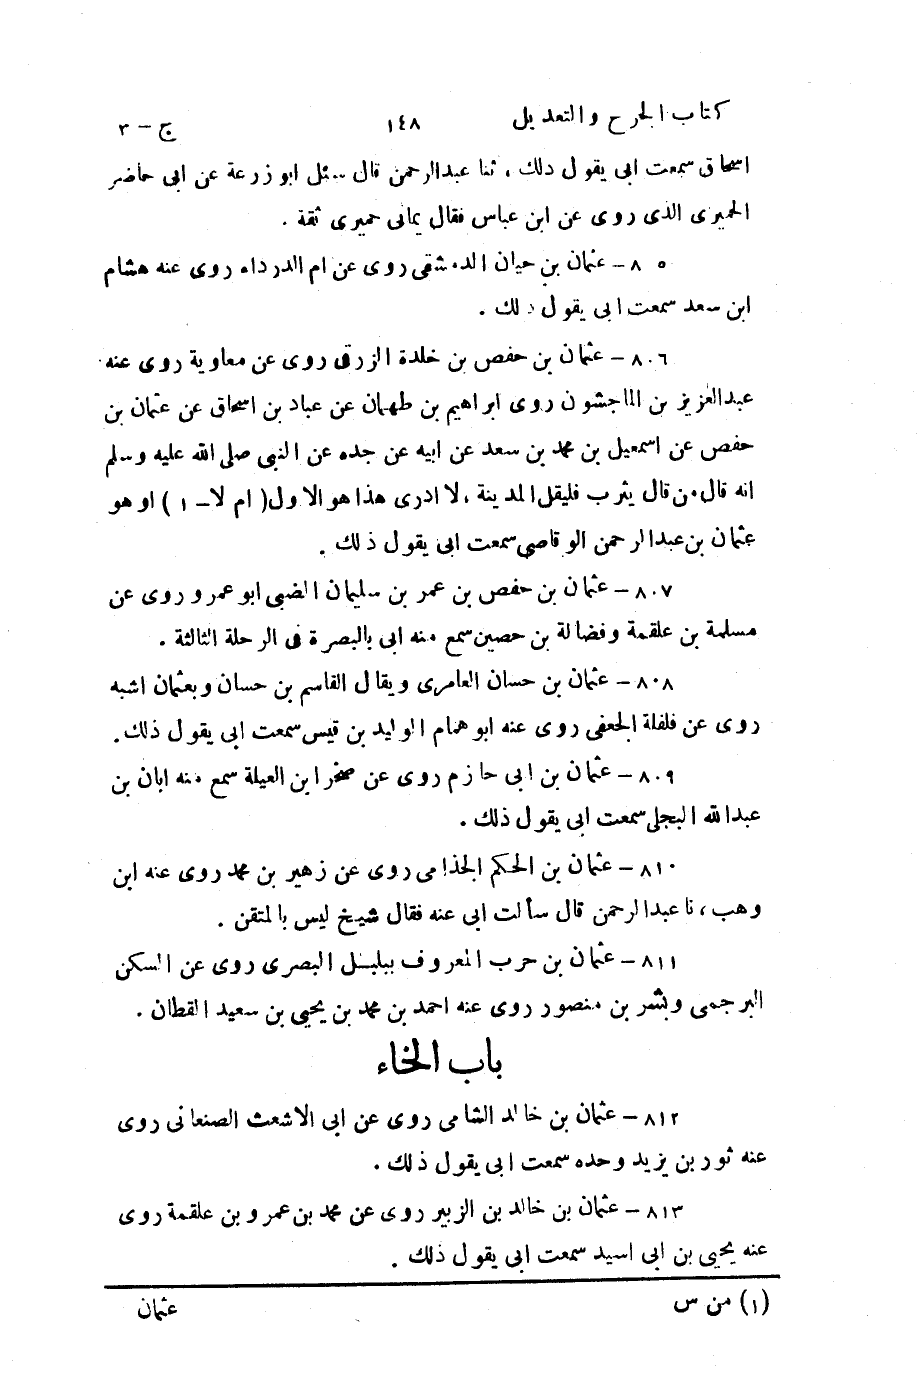 كتاب الجرح والتعديل ١٤٨ ج – ٣
اسحاق سمعت ابى يقول ذلك ، ثنا عبدالرحمن قال سئل ابو زرعة عن ابى حاضر
الحميرى الذى روى عن ابن عباس فقال يمانى حميرى ثقة .
٨٠٥ – عثمان بن حيان الدمشقى روى عن ام الدرداء روى عنه هشام
ابن سعد سمعت ابى يقول ذلك .
٨٠٦ – عثمان بن حفص بن خلدة الزرقى روى عن معاوية روى عنه
عبدالعزيز بن الماجشون روى ابراهيم بن طهمان عن عباد بن اسحاق عن عثمان بن
حفص عن اسمعيل بن محمد بن سعد عن ابيه عن جده عن النبى صلى الله عليه وسلم
انه قال من قال يثرب فليقل المدينة ، لا ادرى هذا هو الاول ( ام لا – ١ ) او هو
عثمان بن عبدالرحمن الوقاصى سمعت ابى يقول ذلك .
٨٠٧ – عثمان بن حفص بن عمر بن سليمان الضبى ابو عمرو روى عن
مسلمة بن علقمة وفضالة بن حصين سمع منه ابى بالبصرة فى الرحلة الثالثة .
٨٠٨ – عثمان بن حسان العامرى ويقال القاسم بن حسان وبعثمان اشبه
روى عن فلفلة الجعفى روى عنه ابو همام الوليد بن قيس سمعت ابى يقول ذلك .
٨٠٩ – عثمان بن ابى حازم روى عن صخر ابن العيلة سمع منه ابان بن
عبدالله البجلى سمعت ابى يقول ذلك .
٨١٠ – عثمان بن الحكم الجذامى روى عن زهير بن محمد روى عنه ابن
وهب ، نا عبدالرحمن قال سألت ابى عنه فقال شيخ ليس بالمتقن .
٨١١ – عثمان بن حرب المعروف ببلبل البصرى روى عن السكن
البرجمى وبشر بن منصور روى عنه احمد بن محمد بن يحيى بن سعيد القطان .
باب الخاء
٨١٢ – عثمان بن خالد الشامى روى عن ابى الاشعث الصنعانى روى
عنه ثور بن يزيد وحده سمعت ابى يقول ذلك .
٨١٣ – عثمان بن خالد بن الزبير روى عن محمد بن عمرو بن علقمة روى
عنه يحيى بن ابى اسيد سمعت ابى يقول ذلك .
(١) من س عثمان